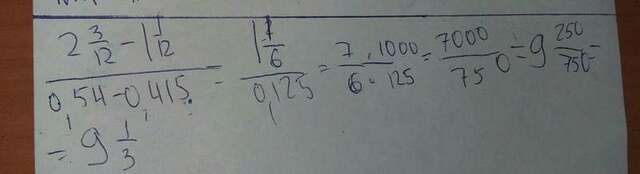 (2 3/12 - 1 1/12) / (0,54 - 0,415) = (1 1/6) / (0,125) = (7 · 1000) / (6 · 125) = 7000 / 750 = 9 250/750 =
= 9 1/3